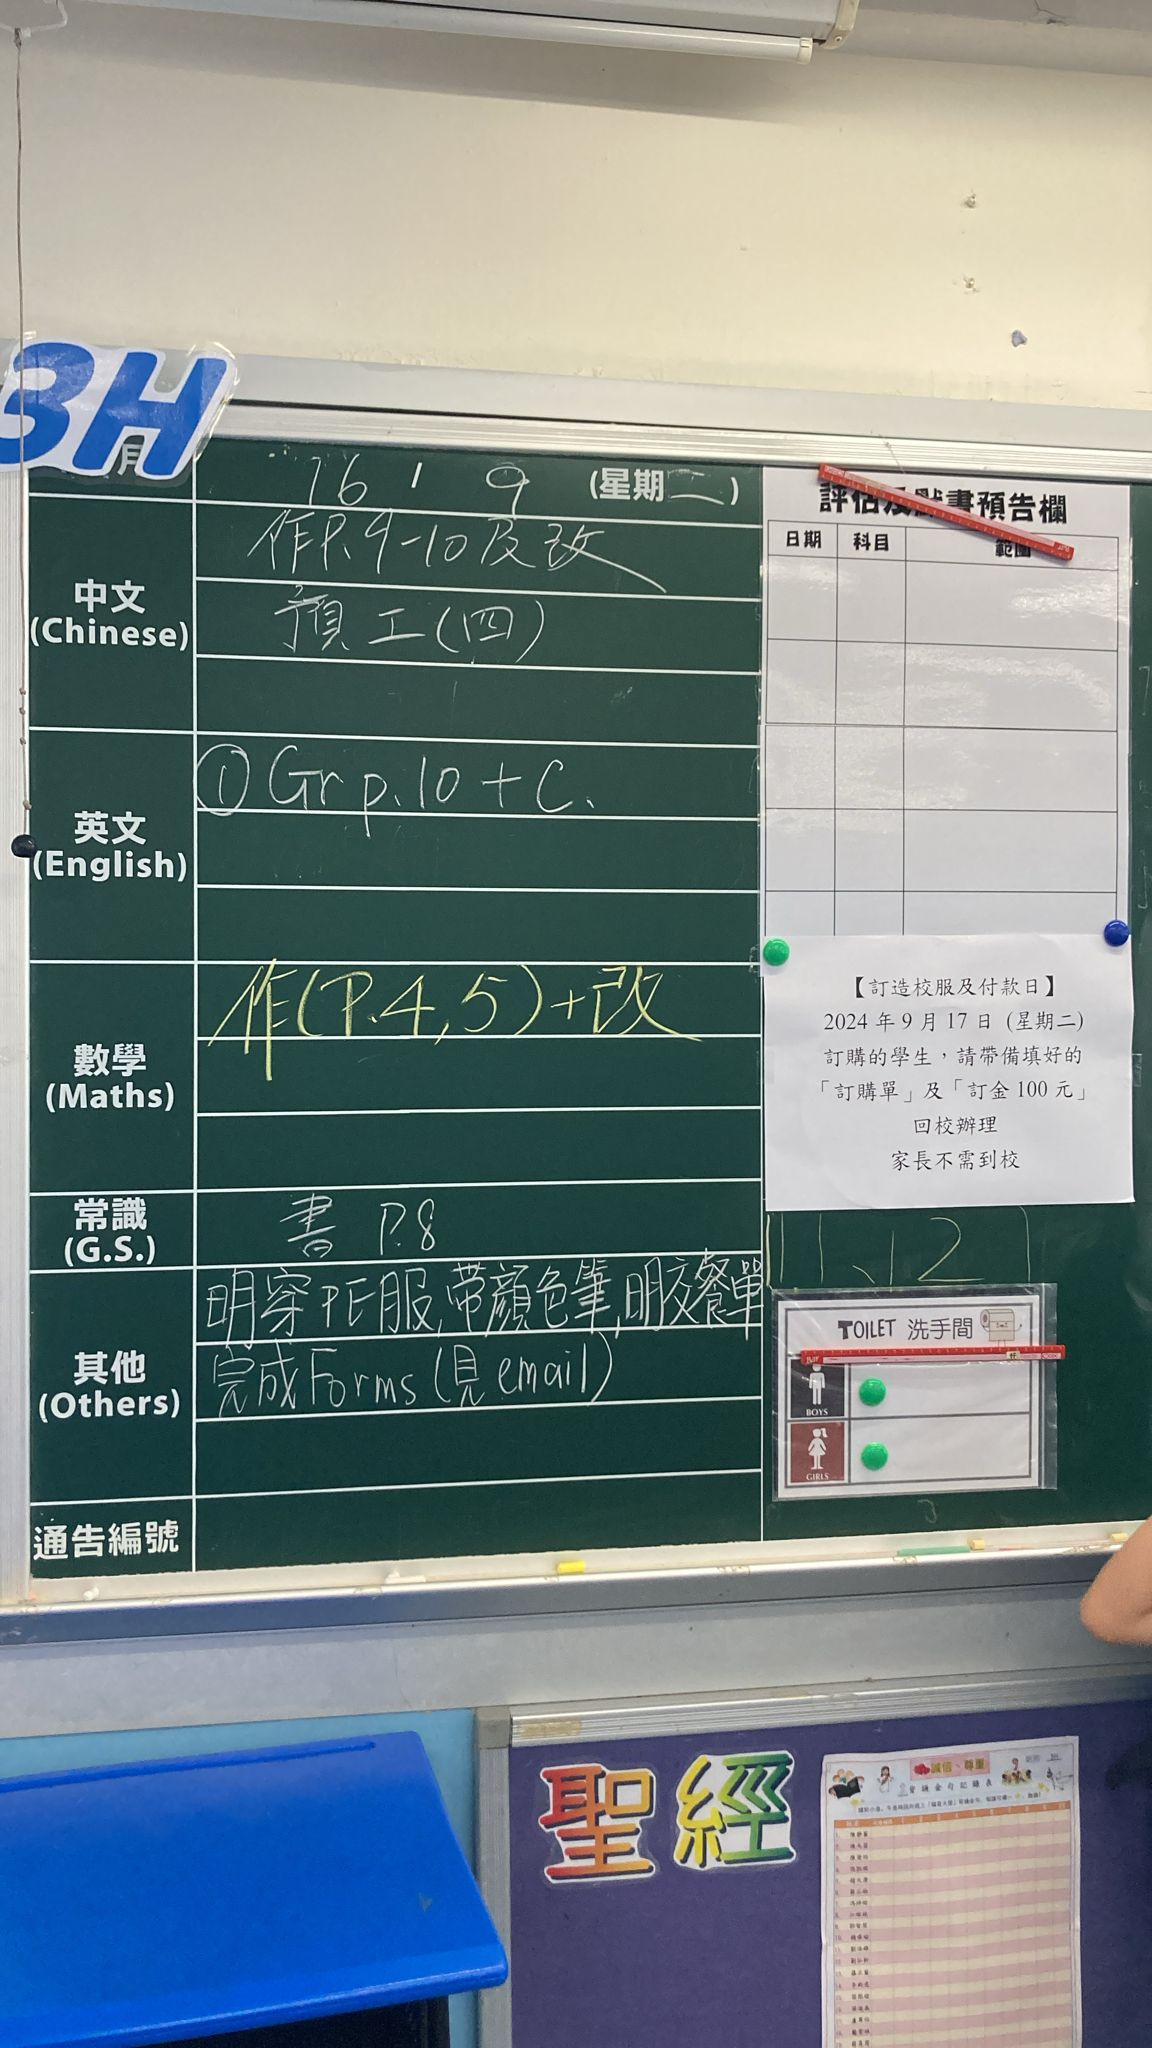 3H
月
16 / 9 (星期二)
中文
(Chinese)
作P.9-10及改
預工(四)
英文
(English)
① Gr p.10 + C.
數學
(Maths)
作(P.4,5)+改
常識
(G.S.)
書 P.8
其他
(Others)
明穿PE服,帶顏色筆,明交餐單
完成Forms (見email)
通告編號
評估及默書預告欄
日期 科目 範圍
【訂造校服及付款日】
2024 年 9 月 17 日 (星期二)
訂購的學生，請帶備填好的
「訂購單」及「訂金 100 元」
回校辦理
家長不需到校
11、12
TOILET 洗手間
BOYS
GIRLS
聖經
誠信、尊重
背誦金句記錄表